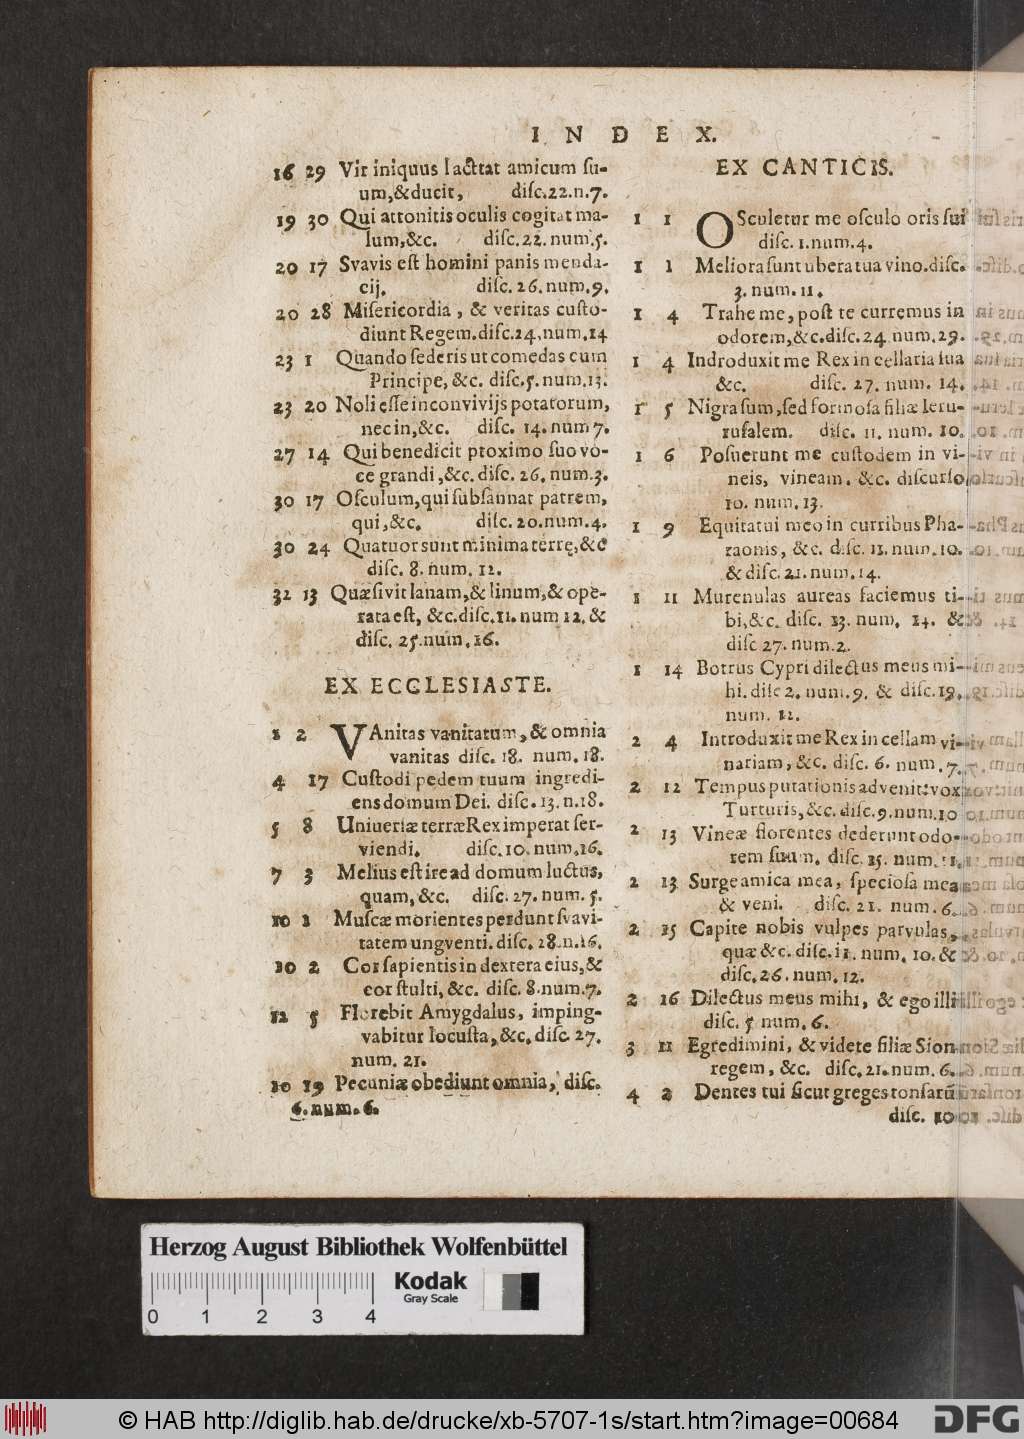 INDEX.
16 29 Vir iniquus lacttat amicum su-
um,&ducit, disc.22.n.7.
19 30 Qui attonitis oculis cogitat ma-
lum,&c. disc.22. num.5.
20 17 Svavis est homini panis menda-
cij. disc. 26. num.9.
20 28 Misericordia, & veritas custo-
diunt Regem.disc.24.num.14
23 1 Quando sederis ut comedas cum
Principe, &c. disc.5.num.13.
23 20 Noli esse in convivijs potatorum,
nec in,&c. disc. 14. num 7.
27 14 Qui benedicit proximo suo vo-
ce grandi,&c. disc. 26. num.3.
30 17 Osculum,qui subsannat patrem,
qui,&c. disc.20.num.4.
30 24 Quatuor sunt minima terrę,&c
disc. 8. num. 12.
32 13 Quæsivit lanam,& linum,& ope-
rata est, &c.disc.11. num 12. &
disc. 25.num.16.
EX ECCLESIASTE.
1 2 VAnitas vanitatum,& omnia
vanitas disc. 18. num. 18.
4 17 Custodi pedem tuum ingredi-
ens domum Dei. disc. 13.n.18.
5 8 Universæ terræ Rex imperat ser-
viendi. disc.10.num.16.
7 3 Melius est ire ad domum luctus,
quam,&c. disc. 27. num. 5.
10 1 Muscæ morientes perdunt svavi-
tatem ungventi. disc. 28.n.16.
10 2 Cor sapientis in dextera eius,&
cor stulti, &c. disc. 8.num.7.
12 5 Florebit Amygdalus, imping-
vabitur locusta,&c. disc. 27.
num. 21.
10 19 Pecuniæ obediunt omnia, disc.
6. num. 6.
EX CANTICIS.
1 1 OSculetur me osculo oris sui
disc. 1.num.4.
1 1 Meliora sunt ubera tua vino.disc.
3. num. 11.
1 4 Trahe me, post te curremus in
odorem,&c.disc.24 num.29.
1 4 Indroduxit me Rex in cellaria sua
&c. disc. 27. num. 14.
1 5 Nigra sum,sed formosa filiæ Ieru-
rusalem. disc. 11. num. 10.
1 6 Posuerunt me custodem in vi-
neis, vineam. &c. discurso
10. num. 13.
1 9 Equitatui meo in curribus Pha-
raonis, &c. disc. 11.num.10.
& disc. 21.num.14.
1 11 Murenulas aureas faciemus ti-
bi,&c. disc. 13. num. 14. &
disc 27. num.2.
1 14 Botrus Cypri dilectus meus mi-
hi. disc 2. num.9. & disc.19.
num. 12.
2 4 Introduxit me Rex in cellam vi-
nariam, &c. disc. 6. num. 7.
2 12 Tempus putationis advenit:vox
Turturis,&c.disc.9.num.10
2 13 Vineæ florentes dederunt odo-
rem suum. disc. 15. num. 11.
2 13 Surge amica mea, speciosa mea
& veni. disc. 21. num. 6.
2 15 Capite nobis vulpes parvulas,
quæ &c. disc.11. num. 10. &
disc.26.num. 12.
2 16 Dilectus meus mihi, & ego illi
disc. 5 num. 6.
3 11 Egredimini, & videte filiæ Sion
regem, &c. disc.21.num.6.
4 2 Dentes tui sicut greges tonsarũ
disc. 10
Herzog August Bibliothek Wolfenbüttel
Kodak
Gray Scale
0 1 2 3 4
© HAB http://diglib.hab.de/drucke/xb-5707-1s/start.htm?image=00684
DFG